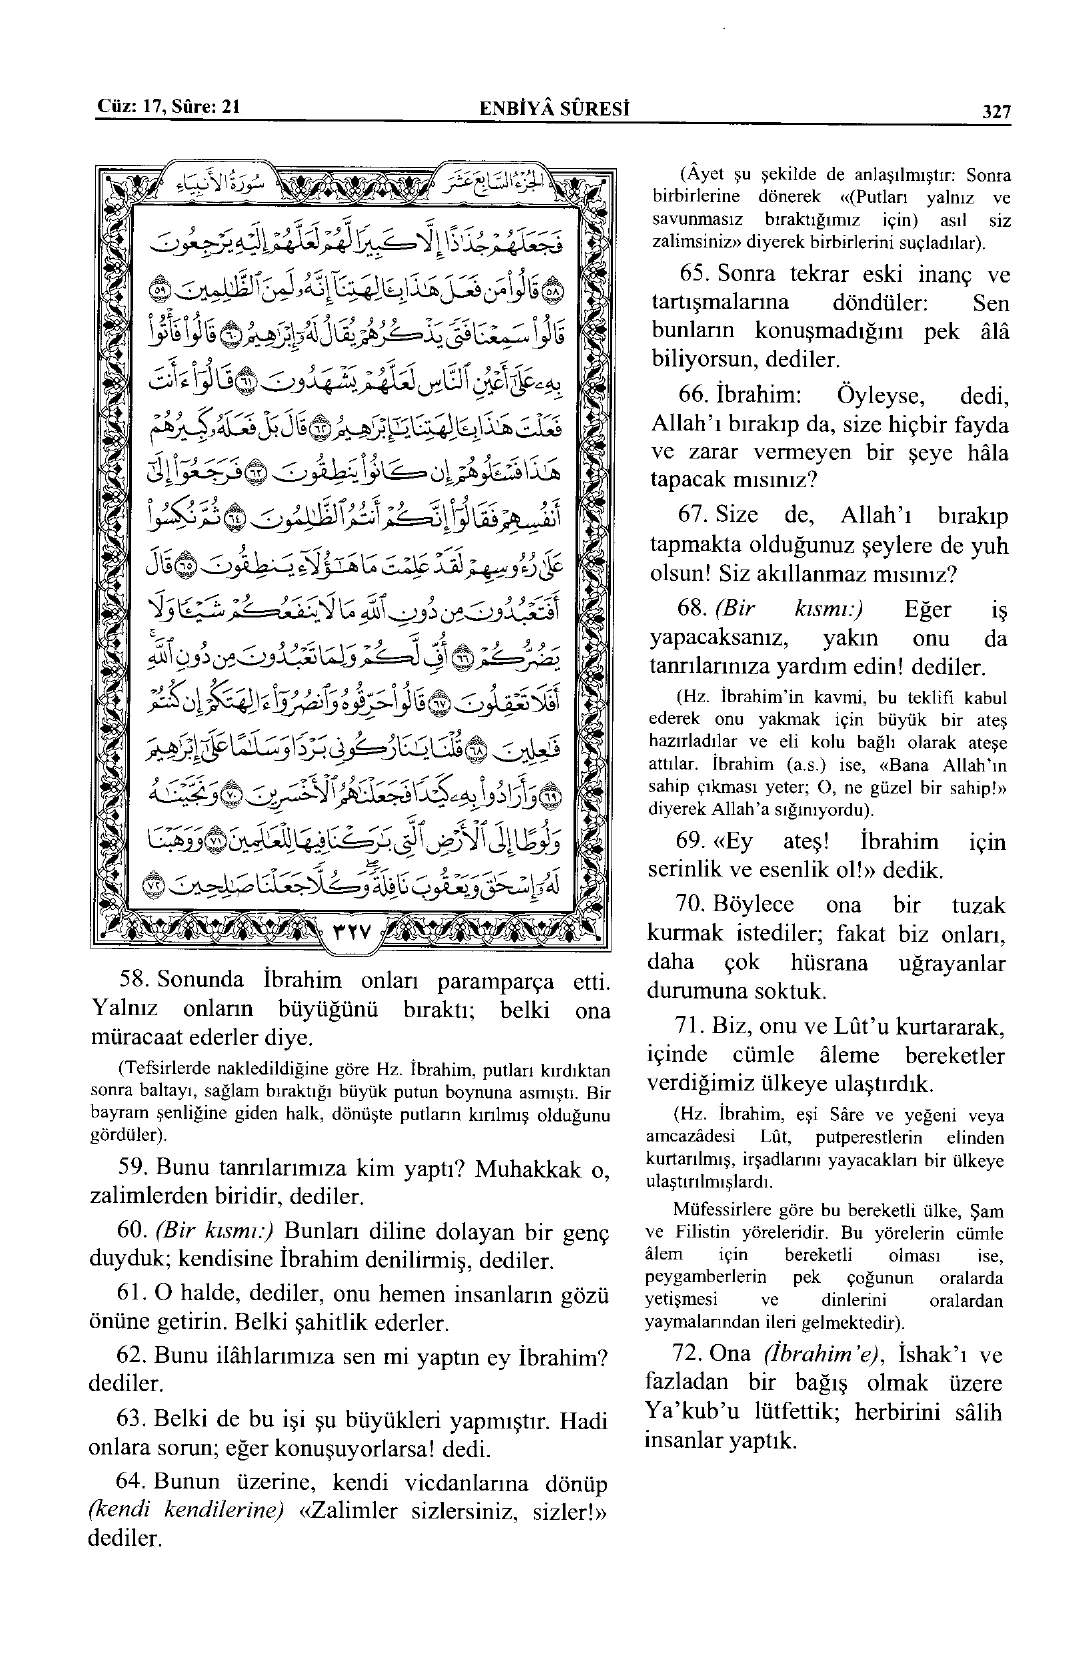 Cüz: 17, Sûre: 21 ENBİYÂ SÛRESİ 327
الجزء السابع عشر سورة الأنبياء
فَجَعَلَهُمْ جُذَاذًا إِلَّا كَبِيرًا لَّهُمْ لَعَلَّهُمْ إِلَيْهِ يَرْجِعُونَ
﴿٥٨﴾ قَالُوا مَن فَعَلَ هَٰذَا بِآلِهَتِنَا إِنَّهُ لَمِنَ الظَّالِمِينَ ﴿٥٩﴾
قَالُوا سَمِعْنَا فَتًى يَذْكُرُهُمْ يُقَالُ لَهُ إِبْرَاهِيمُ ﴿٦٠﴾ قَالُوا فَأْتُوا
بِهِ عَلَىٰ أَعْيُنِ النَّاسِ لَعَلَّهُمْ يَشْهَدُونَ ﴿٦١﴾ قَالُوا أَأَنتَ
فَعَلْتَ هَٰذَا بِآلِهَتِنَا يَا إِبْرَاهِيمُ ﴿٦٢﴾ قَالَ بَلْ فَعَلَهُ كَبِيرُهُمْ
هَٰذَا فَاسْأَلُوهُمْ إِن كَانُوا يَنطِقُونَ ﴿٦٣﴾ فَرَجَعُوا إِلَىٰ
أَنفُسِهِمْ فَقَالُوا إِنَّكُمْ أَنتُمُ الظَّالِمُونَ ﴿٦٤﴾ ثُمَّ نُكِسُوا
عَلَىٰ رُءُوسِهِمْ لَقَدْ عَلِمْتَ مَا هَٰؤُلَاءِ يَنطِقُونَ ﴿٦٥﴾ قَالَ
أَفَتَعْبُدُونَ مِن دُونِ اللَّهِ مَا لَا يَنفَعُكُمْ شَيْئًا وَلَا
يَضُرُّكُمْ ﴿٦٦﴾ أُفٍّ لَّكُمْ وَلِمَا تَعْبُدُونَ مِن دُونِ اللَّهِ
أَفَلَا تَعْقِلُونَ ﴿٦٧﴾ قَالُوا حَرِّقُوهُ وَانصُرُوا آلِهَتَكُمْ إِن كُنتُمْ
فَاعِلِينَ ﴿٦٨﴾ قُلْنَا يَا نَارُ كُونِي بَرْدًا وَسَلَامًا عَلَىٰ إِبْرَاهِيمَ
﴿٦٩﴾ وَأَرَادُوا بِهِ كَيْدًا فَجَعَلْنَاهُمُ الْأَخْسَرِينَ ﴿٧٠﴾ وَنَجَّيْنَاهُ
وَلُوطًا إِلَى الْأَرْضِ الَّتِي بَارَكْنَا فِيهَا لِلْعَالَمِينَ ﴿٧١﴾ وَوَهَبْنَا
لَهُ إِسْحَاقَ وَيَعْقُوبَ نَافِلَةً وَكُلًّا جَعَلْنَا صَالِحِينَ ﴿٧٢﴾
٣٢٧
58. Sonunda İbrahim onları paramparça etti.
Yalnız onların büyüğünü bıraktı; belki ona
müracaat ederler diye.
(Tefsirlerde nakledildiğine göre Hz. İbrahim, putları kırdıktan
sonra baltayı, sağlam bıraktığı büyük putun boynuna asmıştı. Bir
bayram şenliğine giden halk, dönüşte putların kırılmış olduğunu
gördüler).
59. Bunu tanrılarımıza kim yaptı? Muhakkak o,
zalimlerden biridir, dediler.
60. (Bir kısmı:) Bunları diline dolayan bir genç
duyduk; kendisine İbrahim denilirmiş, dediler.
61. O halde, dediler, onu hemen insanların gözü
önüne getirin. Belki şahitlik ederler.
62. Bunu ilâhlarımıza sen mi yaptın ey İbrahim?
dediler.
63. Belki de bu işi şu büyükleri yapmıştır. Hadi
onlara sorun; eğer konuşuyorlarsa! dedi.
64. Bunun üzerine, kendi vicdanlarına dönüp
(kendi kendilerine) «Zalimler sizlersiniz, sizler!»
dediler.
(Âyet şu şekilde de anlaşılmıştır: Sonra
birbirlerine dönerek «(Putları yalnız ve
savunmasız bıraktığımız için) asıl siz
zalimsiniz» diyerek birbirlerini suçladılar).
65. Sonra tekrar eski inanç ve
tartışmalarına döndüler: Sen
bunların konuşmadığını pek âlâ
biliyorsun, dediler.
66. İbrahim: Öyleyse, dedi,
Allah'ı bırakıp da, size hiçbir fayda
ve zarar vermeyen bir şeye hâla
tapacak mısınız?
67. Size de, Allah'ı bırakıp
tapmakta olduğunuz şeylere de yuh
olsun! Siz akıllanmaz mısınız?
68. (Bir kısmı:) Eğer iş
yapacaksanız, yakın onu da
tanrılarınıza yardım edin! dediler.
(Hz. İbrahim'in kavmi, bu teklifi kabul
ederek onu yakmak için büyük bir ateş
hazırladılar ve eli kolu bağlı olarak ateşe
attılar. İbrahim (a.s.) ise, «Bana Allah'ın
sahip çıkması yeter; O, ne güzel bir sahip!»
diyerek Allah'a sığınıyordu).
69. «Ey ateş! İbrahim için
serinlik ve esenlik ol!» dedik.
70. Böylece ona bir tuzak
kurmak istediler; fakat biz onları,
daha çok hüsrana uğrayanlar
durumuna soktuk.
71. Biz, onu ve Lût'u kurtararak,
içinde cümle âleme bereketler
verdiğimiz ülkeye ulaştırdık.
(Hz. İbrahim, eşi Sâre ve yeğeni veya
amcazâdesi Lût, putperestlerin elinden
kurtarılmış, irşadlarını yayacakları bir ülkeye
ulaştırılmışlardı.
Müfessirlere göre bu bereketli ülke, Şam
ve Filistin yöreleridir. Bu yörelerin cümle
âlem için bereketli olması ise,
peygamberlerin pek çoğunun oralarda
yetişmesi ve dinlerini oralardan
yaymalarından ileri gelmektedir).
72. Ona (İbrahim'e), İshak'ı ve
fazladan bir bağış olmak üzere
Ya'kub'u lütfettik; herbirini sâlih
insanlar yaptık.